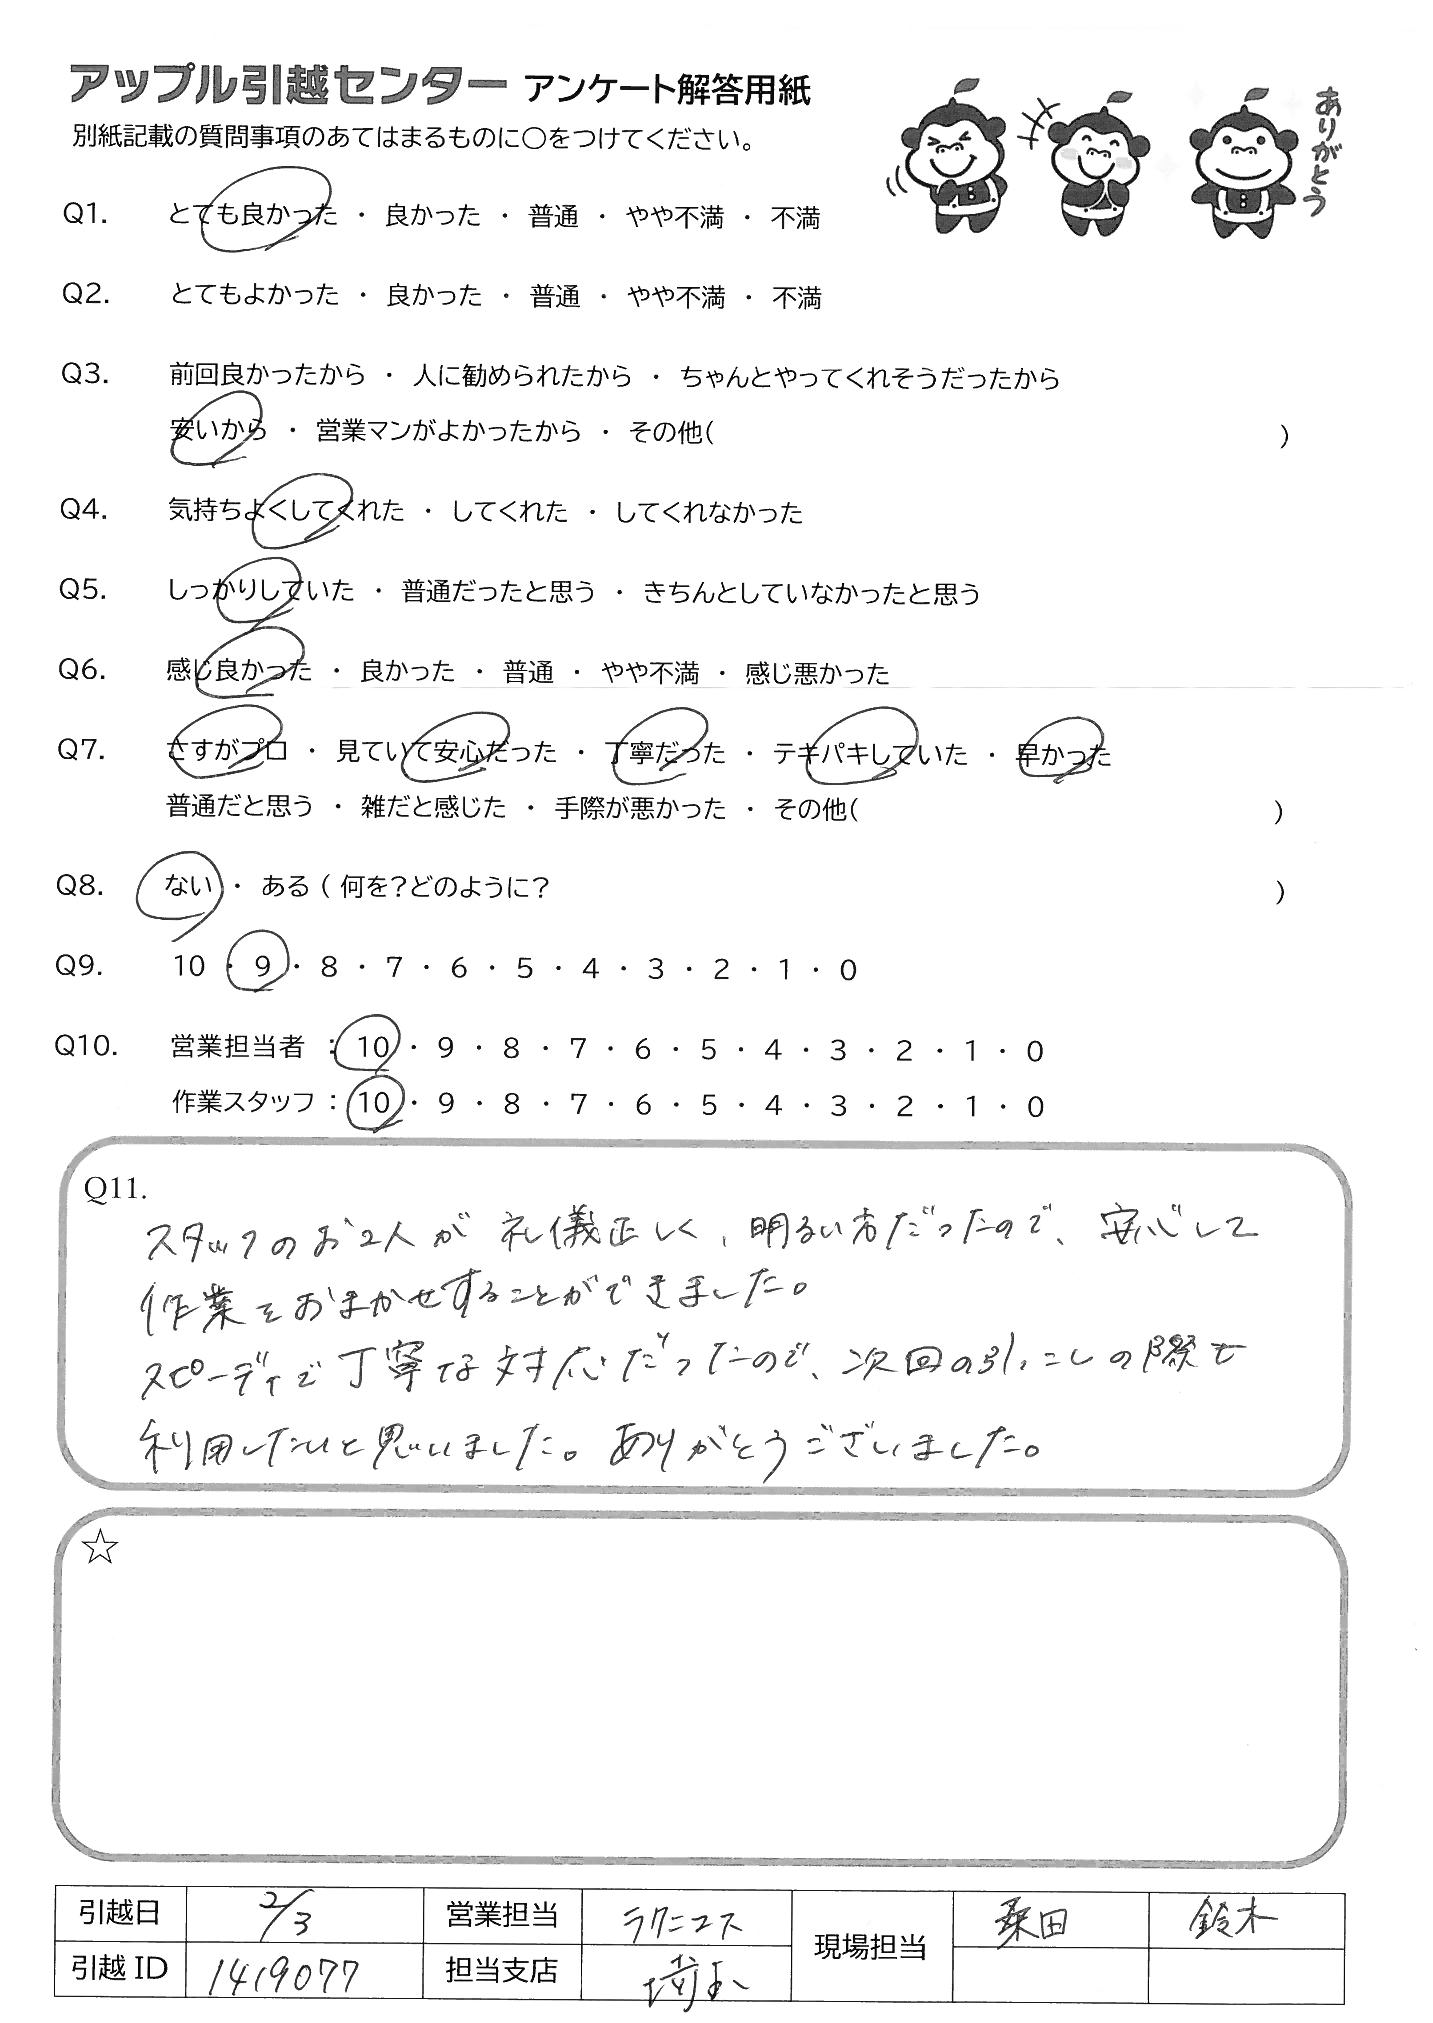 アップル引越センター アンケート解答用紙
別紙記載の質問事項のあてはまるものに○をつけてください。
ありがとう
Q1. とても良かった ・ 良かった ・ 普通 ・ やや不満 ・ 不満
Q2. とてもよかった ・ 良かった ・ 普通 ・ やや不満 ・ 不満
Q3. 前回良かったから ・ 人に勧められたから ・ ちゃんとやってくれそうだったから
安いから ・ 営業マンがよかったから ・ その他( )
Q4. 気持ちよくしてくれた ・ してくれた ・ してくれなかった
Q5. しっかりしていた ・ 普通だったと思う ・ きちんとしていなかったと思う
Q6. 感じ良かった ・ 良かった ・ 普通 ・ やや不満 ・ 感じ悪かった
Q7. さすがプロ ・ 見ていて安心だった ・ 丁寧だった ・ テキパキしていた ・ 早かった
普通だと思う ・ 雑だと感じた ・ 手際が悪かった ・ その他( )
Q8. ない ・ ある ( 何を?どのように? )
Q9. 10 ・ 9 ・ 8 ・ 7 ・ 6 ・ 5 ・ 4 ・ 3 ・ 2 ・ 1 ・ 0
Q10. 営業担当者 : 10 ・ 9 ・ 8 ・ 7 ・ 6 ・ 5 ・ 4 ・ 3 ・ 2 ・ 1 ・ 0
作業スタッフ : 10 ・ 9 ・ 8 ・ 7 ・ 6 ・ 5 ・ 4 ・ 3 ・ 2 ・ 1 ・ 0
Q11.
スタッフのお2人が礼儀正しく、明るい方だったので、安心して
作業をおまかせすることができました。
スピーディで丁寧な対応だったので、次回の引っこしの際も
利用したいと思いました。ありがとうございました。
☆
引越日 2/3 営業担当 ラクニコス 現場担当 桑田 鈴木
引越ID 1419077 担当支店 埼玉